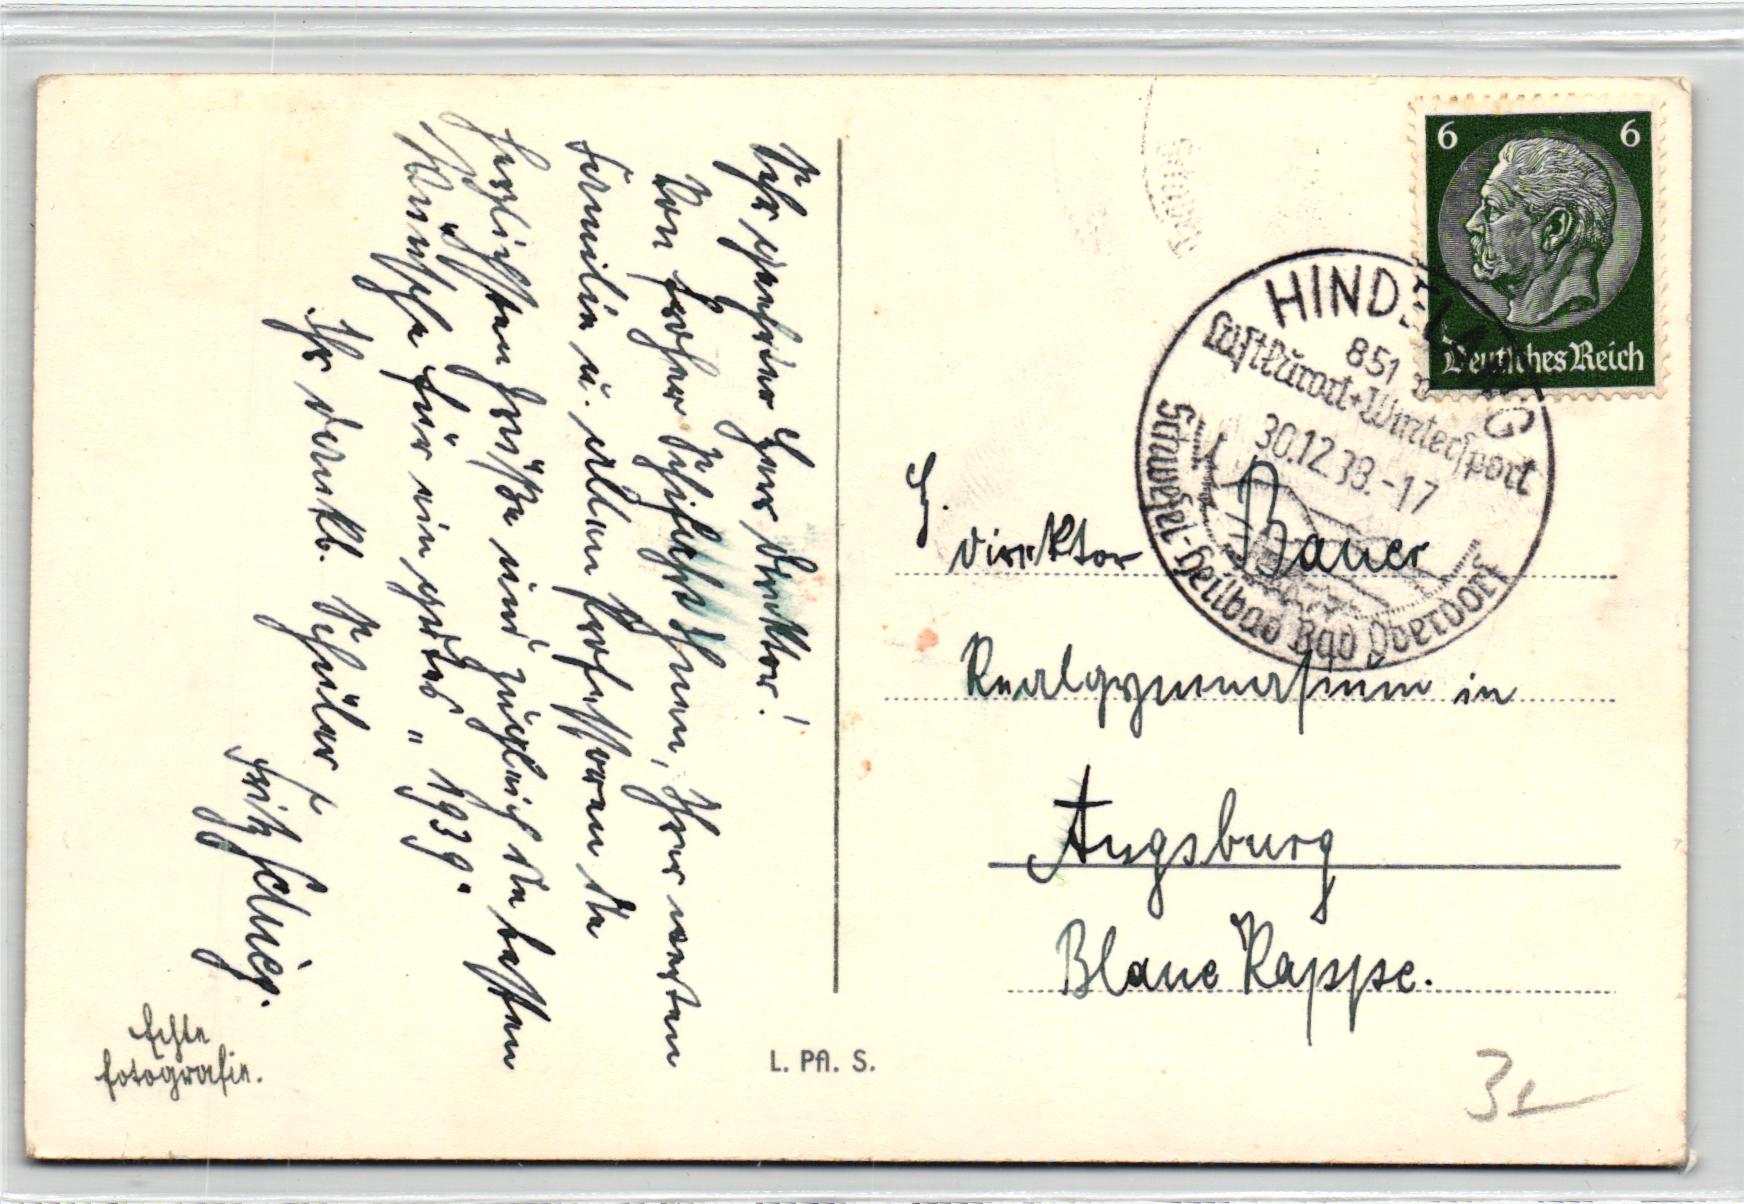 Sehr geehrter Herr Direktor!
Von froher Schifahrt Ihnen, Ihrer werten
Familie u. allen Professoren die
herzlichsten Grüße und zugleich die besten
Wünsche für ein gutes „1939“.
Ihr dankb. Schüler
Fritz
Echte
Fotografie.
L. Pfl. S.
6 6
Deutsches Reich
HINDELANG
851 m
Luftkurort + Wintersport
30.12.38.-17
Schwefel-Heilbad Bad Oberdorf
H.
Direktor Bauer
Realgymnasium in
Augsburg
Blaue Kappe.